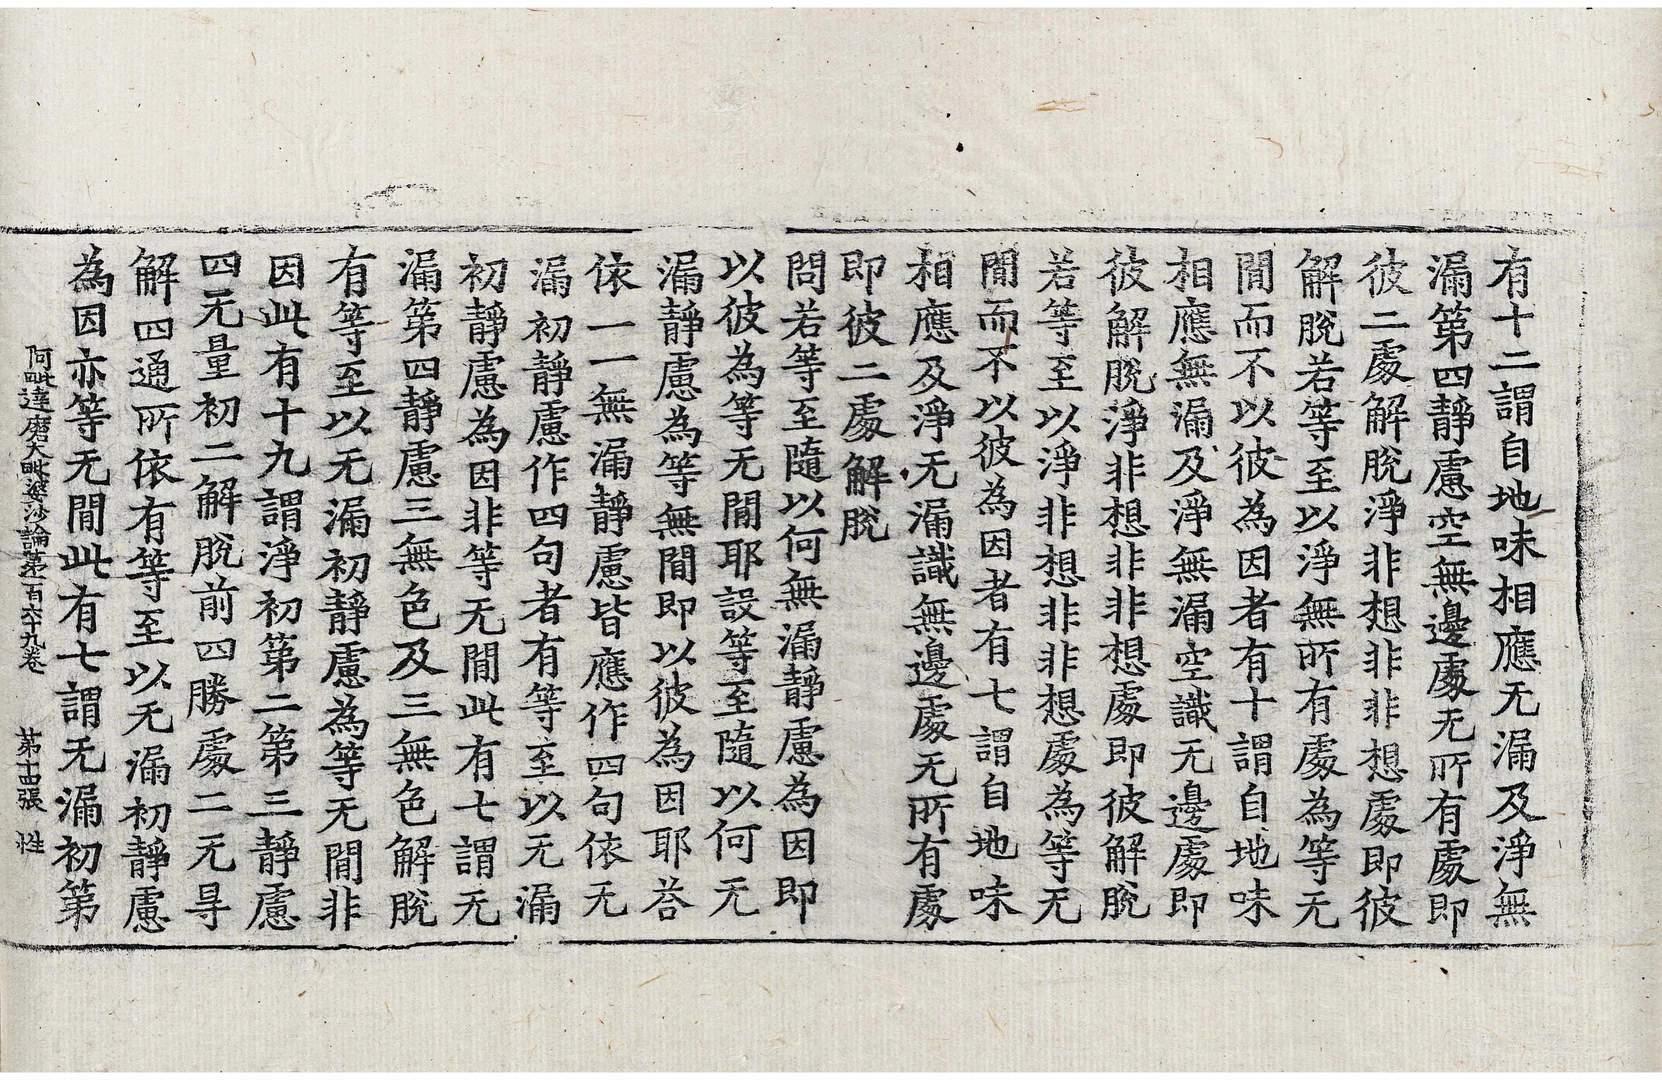 有十二謂自地味相應无漏及淨無
漏第四靜慮空無邊處无所有處即
彼二處解脫淨非想非非想處即彼
解脫若等至以淨無所有處為等无
間而不以彼為因者有十謂自地味
相應無漏及淨無漏空識无邊處即
彼解脫淨非想非非想處即彼解脫
若等至以淨非想非非想處為等无
間而不以彼為因者有七謂自地味
相應及淨无漏識無邊處无所有處
即彼二處解脫
問若等至隨以何無漏靜慮為因即
以彼為等无間耶設等至隨以何无
漏靜慮為等無間即以彼為因耶荅
依一一無漏靜慮皆應作四句依无
漏初靜慮作四句者有等至以无漏
初靜慮為因非等无間此有七謂无
漏第四靜慮三無色及三無色解脫
有等至以无漏初靜慮為等无間非
因此有十九謂淨初第二第三靜慮
四无量初二解脫前四勝處二无㝵
解四通所依有等至以无漏初靜慮
為因亦等无間此有七謂无漏初第
阿毗達磨大毗婆沙論第一百六十九卷 第十四張 性